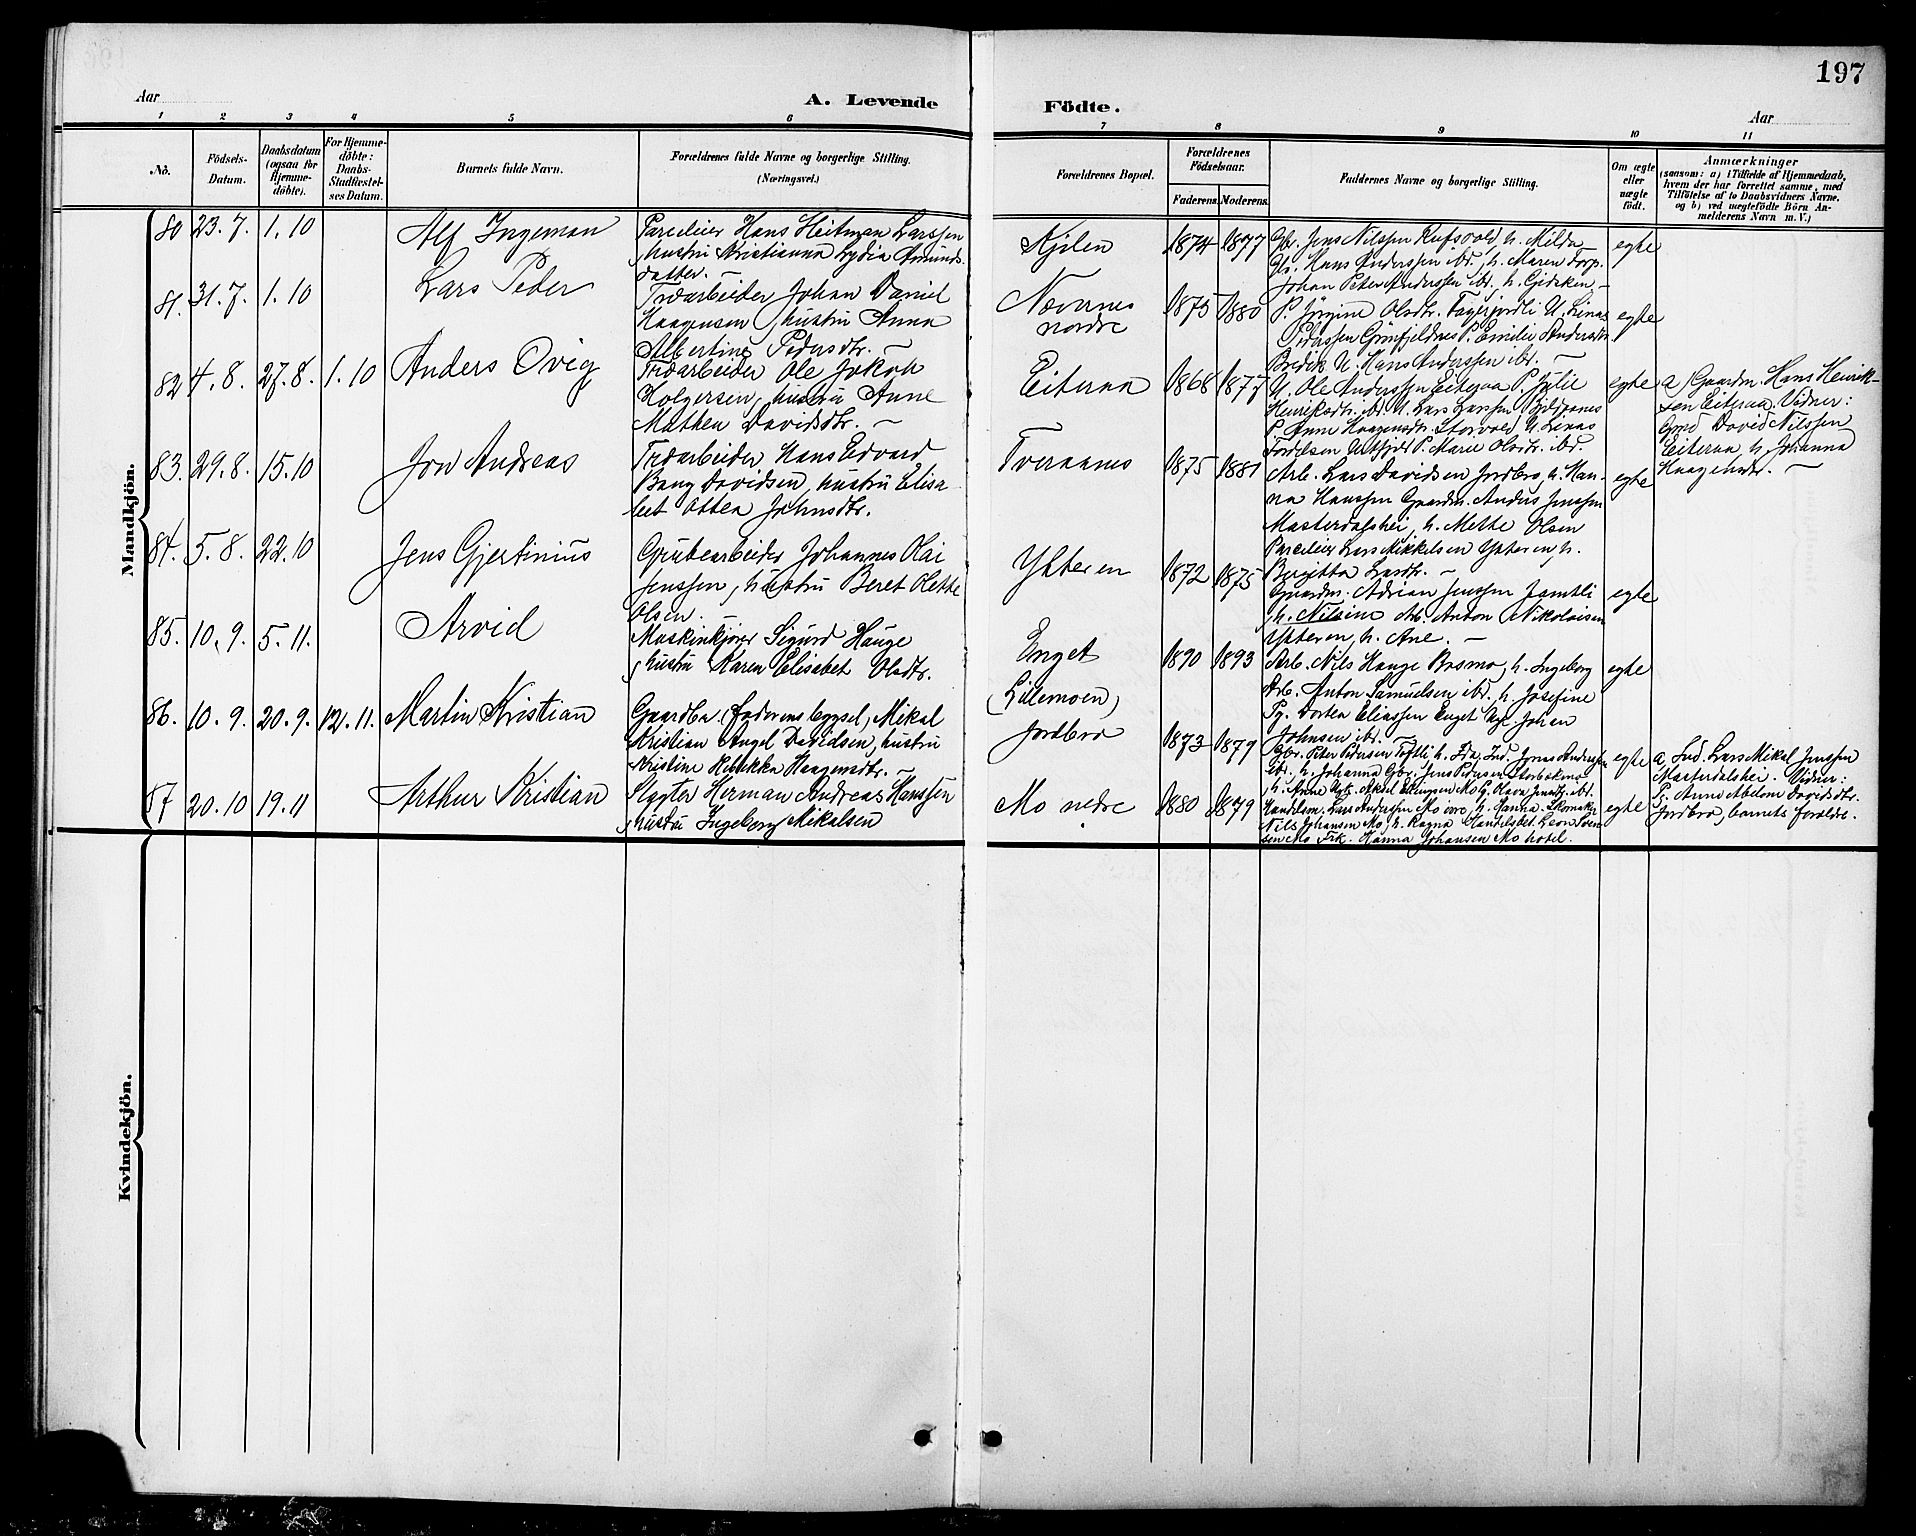 197
Aar
A. Levende
Födte.
Aar
1 2 3 4 5 6 7 8 9 10 11
No.
Födsels-
Datum.
Daabsdatum
(ogsaa for
Hjemme-
döbte).
For Hjemme-
döbte:
Daabs-
Stadfæstel-
ses Datum.
Barnets fulde Navn.
Forældrenes fulde Navne og borgerlige Stilling.
(Næringsvei.)
Forældrenes Bopæl.
Forældrenes
Födselsaar.
Faderens.
Moderens.
Faddernes Navne og borgerlige Stilling.
Om ægte
eller
uægte
födt.
Anmærkninger
(saasom: a) i Tilfælde af Hjemmedaab,
hvem der har forrettet samme, med
Tilföielse af to Daabsvidners Navne,
og b) ved uægtefödte Börn An-
melderens Navn m. V.)
Mandkjön.
80 23.7. 1.10
Alf Ingeman
Parceleier Hans Heitman Larssen
hustru Kristianna Lydia Amunds
datter. —
Kjilen
1874 1877
Gbr. Jens Nilssen Rufsvold, h. Milda
Gbr. Hans Anderssen ibd., h. Maren
Johan Peter Anderssen ibd. h.
egte
81. 31.7. 1.10
Lars Peder
Træarbeider Johan Daniel
Haagensen, hustru Anna
Albertine Pedersdtr. —
Nævernes
nordre
1875 1880
P. Jörgine Olsdtr. Fagerjordli U. Linas
Pederssen Grönfjeldnes P. Emilie Andersdtr.
U. Hans Anderssen ibr. —
egte
82 4.8. 27.8. 1.10
Anders Ovig
Træarbeider Ole Jakob
Holgersen, hustru Anne
Mathea Davidsdtr. —
Eiteraa
1868 1877
U. Ole Anderssen Eiteraa P. Julie
Henriksdtr. ibd. U. Lars Larssen
P. Anne Haagensdtr. Storvold U. Linas
P. Marie Olsdtr. ibd.
egte
a) Gaardm. Hans Henrik-
sen Eiteraa. Vidner:
Gmd David Nilssen
Eiteraa, h. Johanna
Haagensdtr. —
83. 29.8. 15.10
Jon Andreas
Træarbeider Hans Edvard
Bang Davidsen, hustru Elisa
bet Ottea Johnsdtr.
Tveraanes
1875 1881
Arb. Lars Davidsen Jordbro, h. Han-
na Hanssen Gaardm. Andreas Jenssen
Masterdalshei, h. Mette Olsen
egte
84. 5.8. 22.10
Jens Gjertinius
Grubearbeider Johannes Olai
Jenssen, hustru Beret Olette
Olsen.
Ytteren
1872 1875
Parceleier Lars Mikkelsen Ytteren, h.
Bergitta Larsdtr. —
Gaardm. Adrian Jenssen Jamtli
h. Nilsine Arb. Anton Nikolaisen
Ytteren, h. Ane. —
egte
85. 10.9. 5.11.
Arvid
Maskinkjörer Sigurd Hauge
hustru Karen Elisabet Olsdtr.
Enget
(Lillemoen)
1890 1893
Arb. Nils Hauge Bosmo, h. Ingeborg
Arb. Anton Samuelsen ibd. h. Josefine
Pg. Dortea Eliassen Enget Ugk. Johan
Johnsen ibd. —
egte
86. 10.9. 20.9. 12.11.
Martin Kristian
Gaardbr. (faderens bygsel) Mikal
Kristian Angel Davidsen, hustru
Kristine Rebekka Haagensdtr. —
Jordbro
1873 1879
Gbr. Peter Pedersen Toftli h. Ida, Ind. Jonas Anderssen
ibr., h. Johanna Gbr. Jens Pedersen
egte
a, Ind. Lars Mikal Jenssen
Masterdalshei. Vidner:
P. Anne Abelone Davidsdtr.
Jordbro, barnets forældre.
87 20.10 19.11
Arthur Kristian
Slagter Herman Andreas Hanssen
hustru Ingeborg Mikalsen
Mo nedre
1880 1879
h. Anne Ugk. Aksel Ellingsen Mo G. Olava ibd.
Handelsm. Lars Anderssen Mo övre, h. Hanna. Skomak.
Nils Johansen Mo, h. Ragna Handelsbet. Leon Sven-
sen Mo Frk. Hanna Johansen Mo hotel.
egte
Kvindekjön.